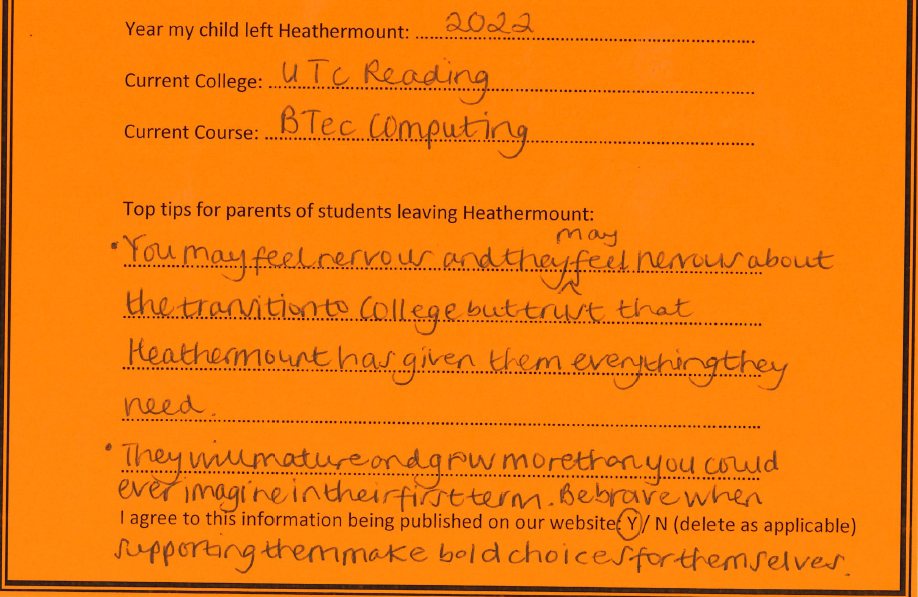 Year my child left Heathermount: 2022
Current College: UTC Reading
Current Course: BTec Computing
Top tips for parents of students leaving Heathermount:
• You may feel nervous and they may feel nervous about
the transition to college but trust that
Heathermount has given them everything they
need.
• They will mature and grow more than you could
ever imagine in their first term. Be brave when
I agree to this information being published on our website: Y / N (delete as applicable)
supporting them make bold choices for themselves.